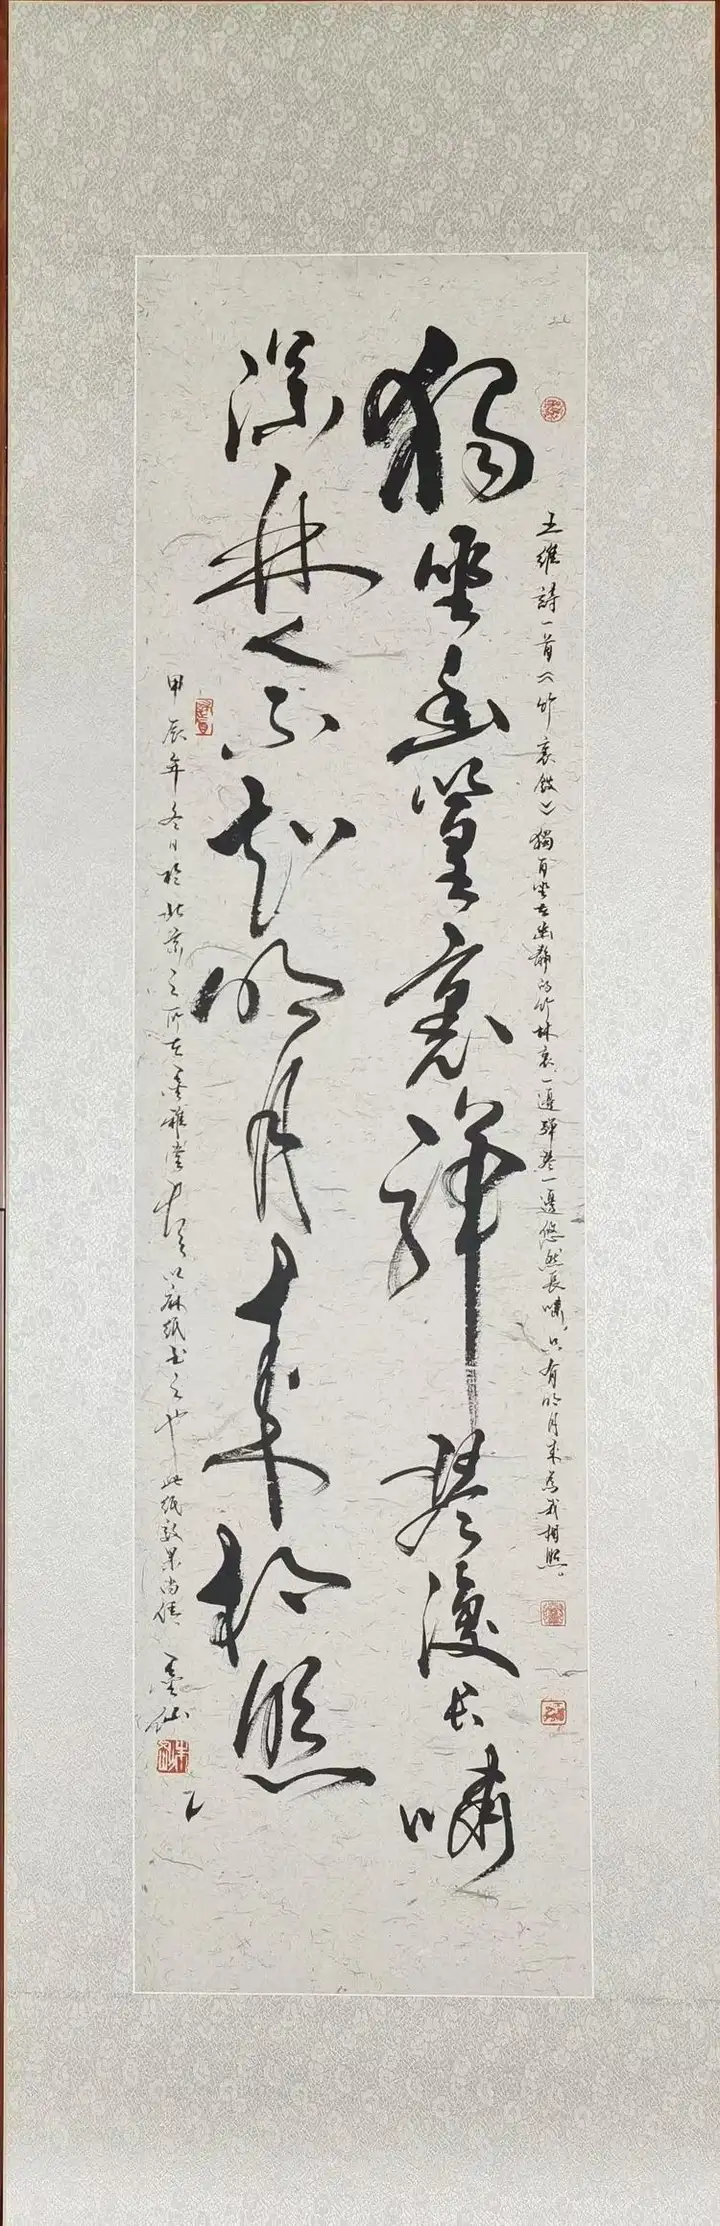 王維詩一首《竹裏館》獨自坐在幽靜的竹林裏，一邊彈琴一邊悠然長嘯，只有明月來為我相照。
獨坐幽篁裏彈琴復長嘯
深林人不知明月來相照
甲辰年冬日於北京之所在墨雅堂以麻紙書之也此紙效果尚佳墨仙